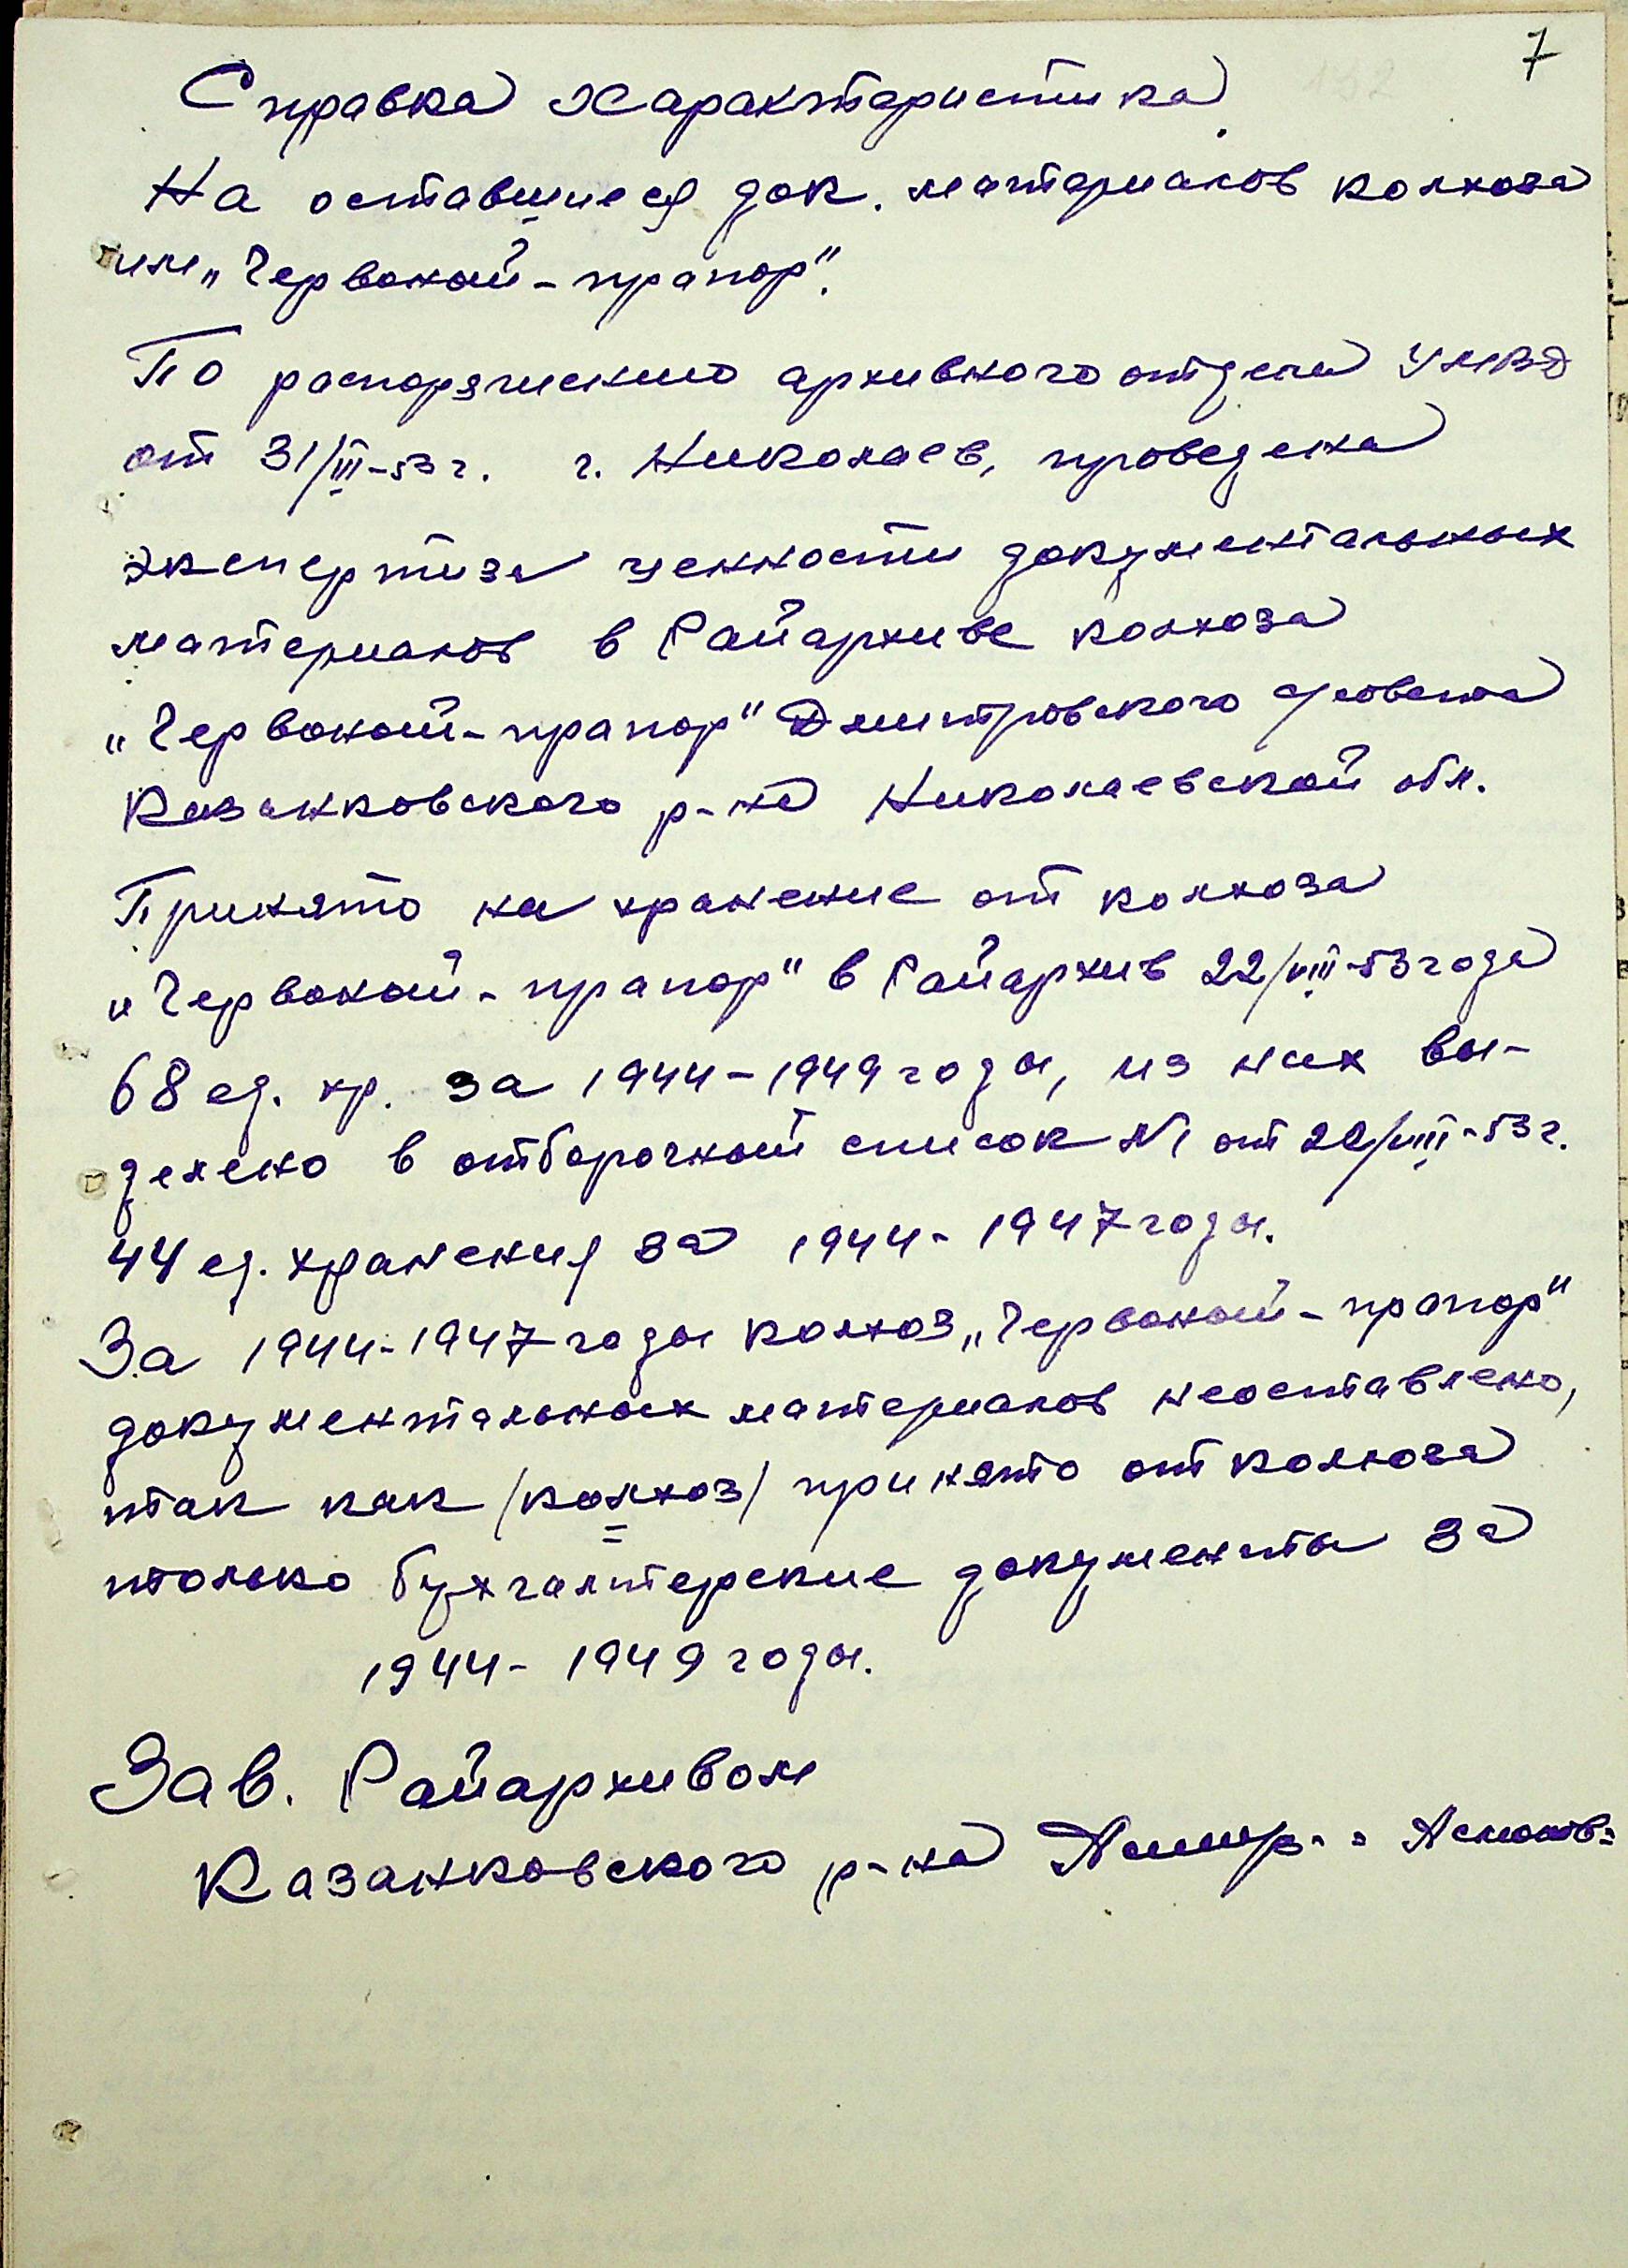 7
Справка характеристика.
На оставшиеся док. материалов колхоза
им „Червоный-прапор".
По распоряжению архивного отдела УМВД
от 31/III-53 г. г. Николаев, проведена
экспертиза ценности документальных
материалов в Райархиве колхоза
„Червоный-прапор" Дмитровского с/совета
Казанковского р-на Николаевской обл.
Принято на хранение от колхоза
„Червоный-прапор" в Райархив 22/VIII-53 года
68 ед. хр. за 1944-1949 годы, из них вы-
делено в отборочный список №1 от 20/VIII-53 г.
44 ед. хранения за 1944-1947 годы.
За 1944-1947 годы колхоз „Червоный-прапор"
документальных материалов неоставлено,
так как /колхоз/ принято от колхоза
только бухгалтерские документы за
1944-1949 годы.
Зав. Райархивом
Казанковского р-на